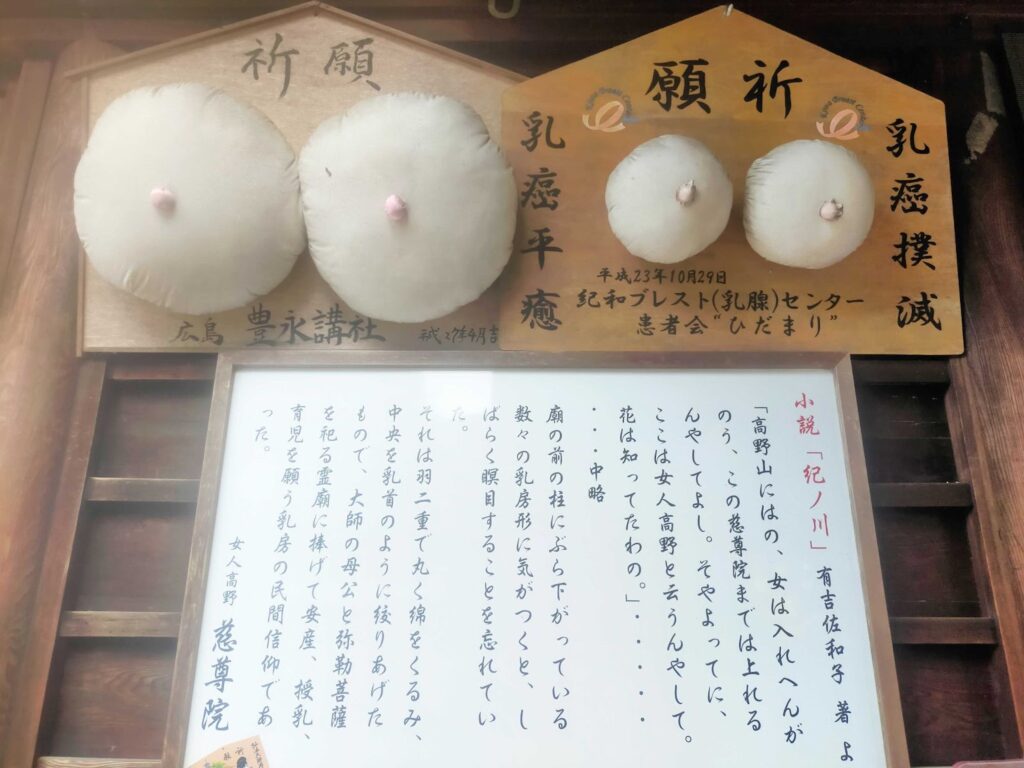 祈願
広島 豊永講社 平成27年4月吉
祈願
乳癌撲滅
乳癌平癒
Kiwa Breast Center
Kiwa Breast Center
平成23年10月29日
紀和ブレスト(乳腺)センター
患者会"ひだまり"
小説「紀ノ川」有吉佐和子 著 よ
「高野山にはの、女は入れへんが
のう、この慈尊院までは上れる
んやしてよし。そやよってに、
ここは女人高野と云うんやして。
花は知ってたわの。」・・・・・
・・・中略
廟の前の柱にぶら下がっている
数々の乳房形に気がつくと、し
ばらく瞑目することを忘れてい
た。
それは羽二重で丸く綿をくるみ、
中央を乳首のように絞りあげた
もので、大師の母公と弥勒菩薩
を祀る霊廟に捧げて安産、授乳、
育児を願う乳房の民間信仰であ
った。
女人高野 慈尊院